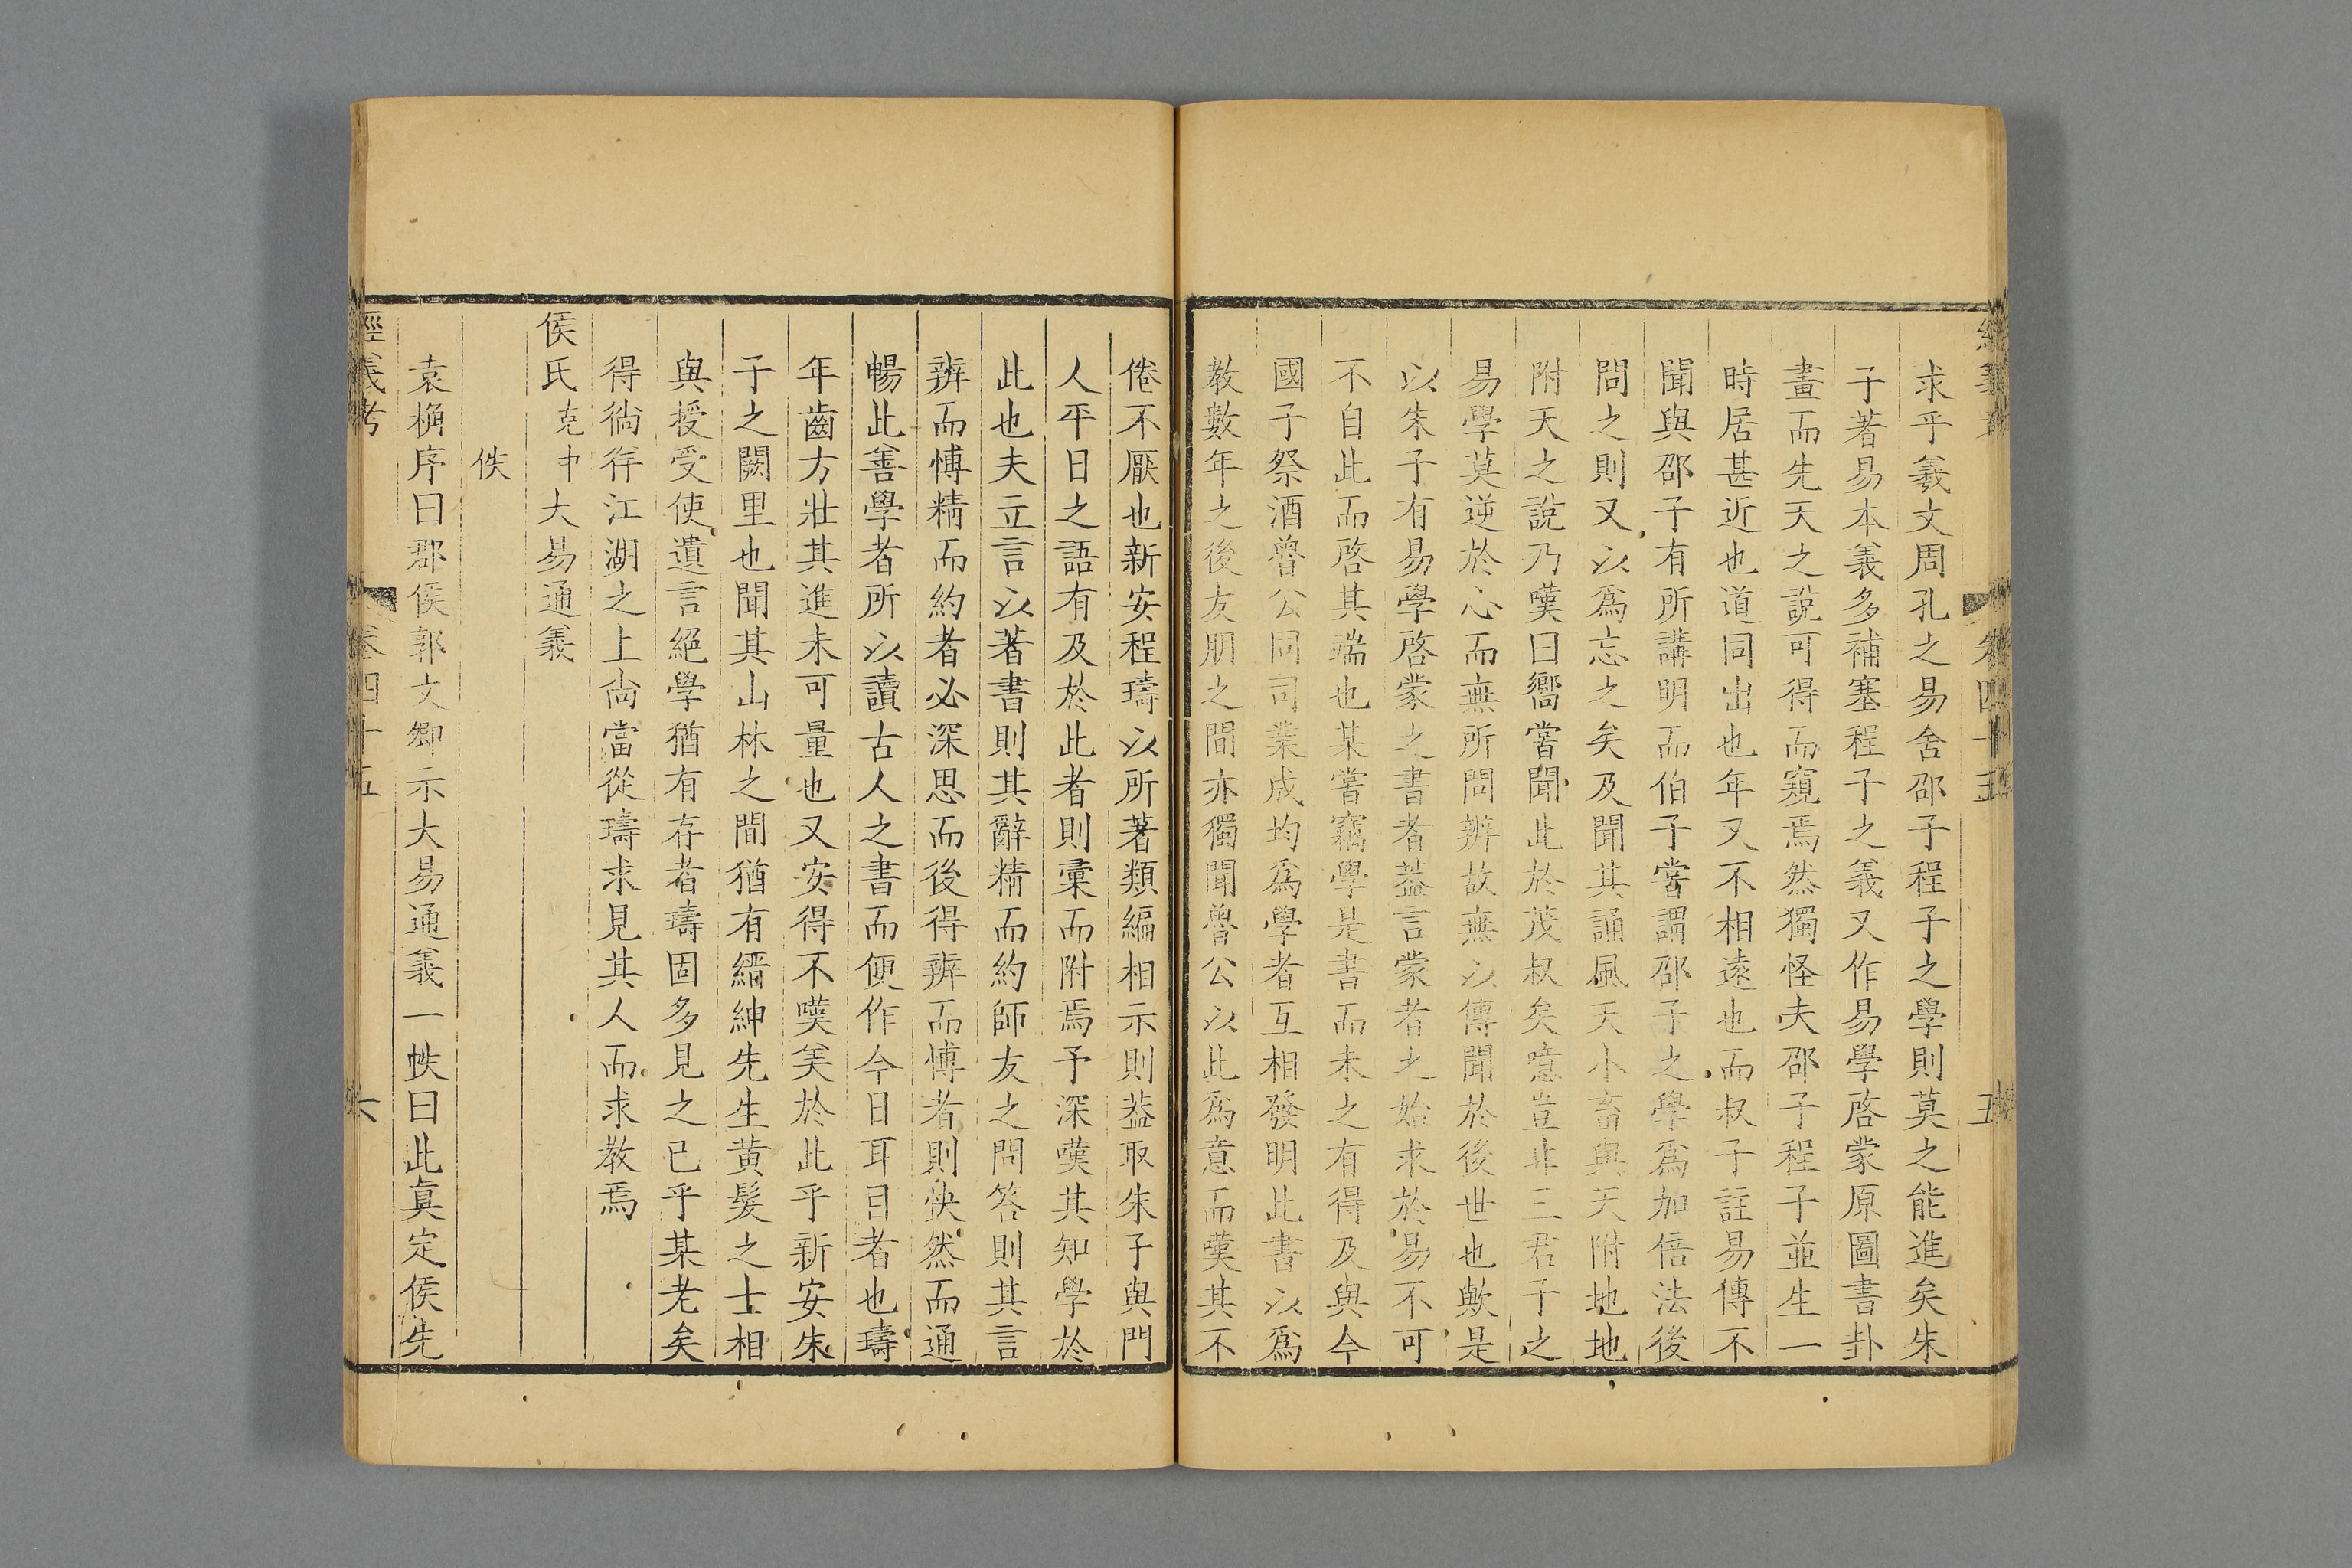 經義考 卷四十五 五
求乎羲文周孔之易舍邵子程子之學則莫之能進矣朱
子著易本義多補塞程子之義又作易學啓蒙原圖書卦
畫而先天之說可得而窺焉然獨怪夫邵子程子並生一
時居甚近也道同出也年又不相遠也而叔子註易傳不
聞與邵子有所講明而伯子嘗謂邵子之學爲加倍法後
問之則又以爲忘之矣及聞其誦風天小畜與天附地地
附天之說乃嘆曰嚮嘗聞此於茂叔矣噫豈非三君子之
易學莫逆於心而無所問辨故無以傳聞於後世也歟是
以朱子有易學啓蒙之書者葢言蒙者之始求於易不可
不自此而啓其端也某嘗竊學是書而未之有得及與今
國子祭酒魯公同司業成均爲學者互相發明此書以爲
教數年之後友朋之間亦獨聞魯公以此爲意而嘆其不
倦不厭也新安程璹以所著類編相示則葢取朱子與門
人平日之語有及於此者則彙而附焉予深嘆其知學於
此也夫立言以著書則其辭精而約師友之問答則其言
辨而博精而約者必深思而後得辨而博者則快然而通
暢此善學者所以讀古人之書而便作今日耳目者也璹
年齒方壯其進未可量也又安得不嘆美於此乎新安朱
子之闕里也聞其山林之間猶有縉紳先生黃髮之士相
與授受使遺言絕學猶有存者璹固多見之已乎某老矣
得徜徉江湖之上尙當從璹求見其人而求教焉
侯氏克中大易通義
佚
袁桷序曰郡侯郭文卿示大易通義一帙曰此眞定侯先
經義考 卷四十五 六